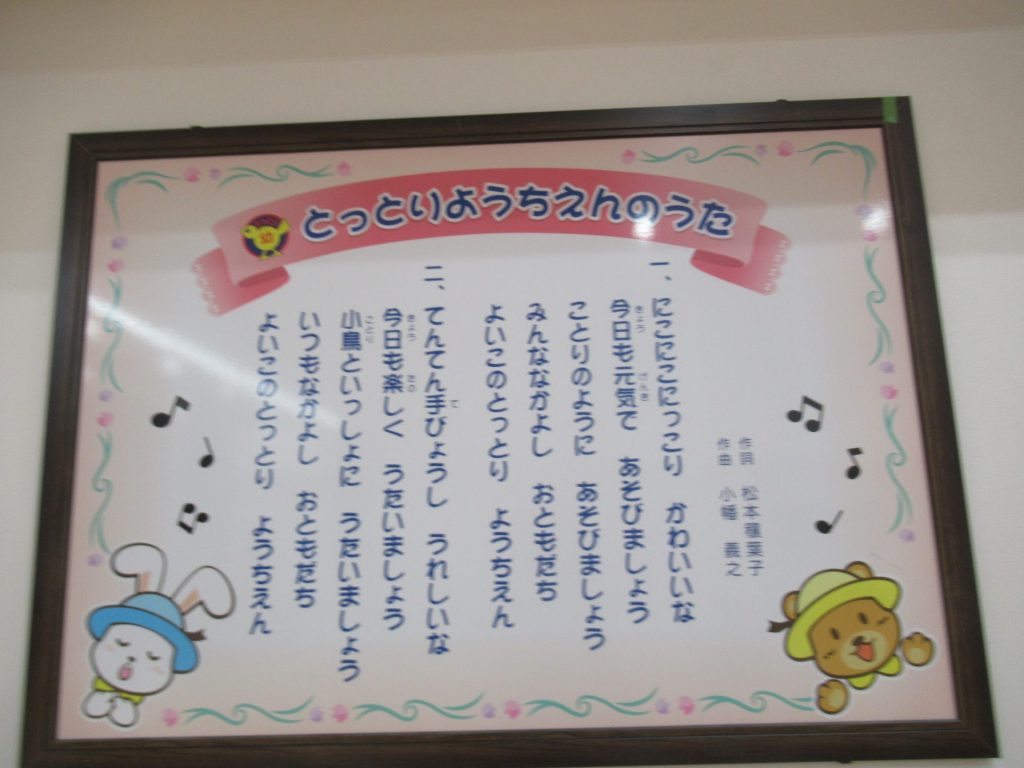 とっとりようちえんのうた
作詞 松本種葉子
作曲 小幡 義之
一、にこにこにっこり かわいいな
今日も元気で あそびましょう
ことりのように あそびましょう
みんななかよし おともだち
よいこのとっとり ようちえん
二、てんてん手びょうし うれしいな
今日も楽しく うたいましょう
小鳥といっしょに うたいましょう
いつもなかよし おともだち
よいこのとっとり ようちえん